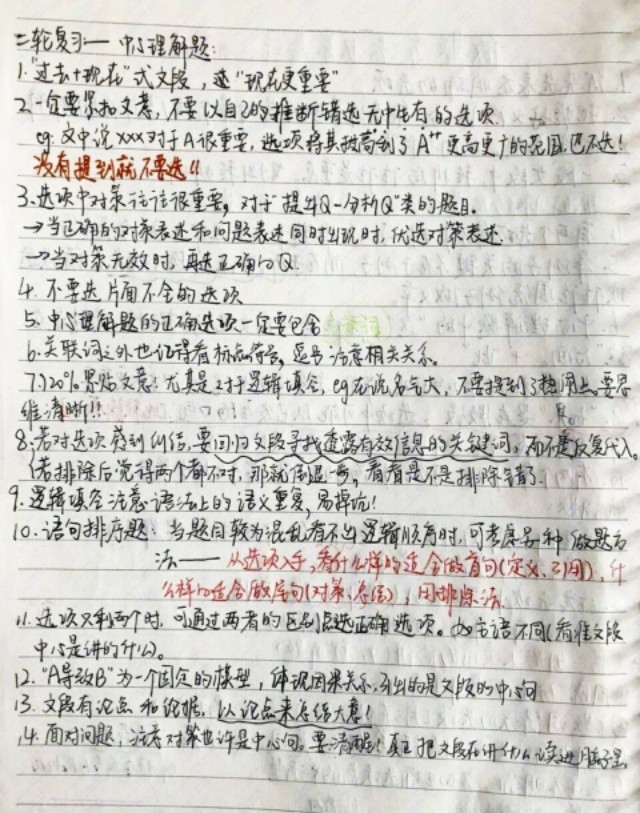 二轮复习——中心理解题:
1."过去+现在"式文段,选"现在更重要"
2.一定要紧扣文意,不要以自己的推断错选无中生有的选项
eg:文中说xxx对于A很重要,选项将其拔高到了A++更高更广的范围,也不选!
没有提到就不要选!!
3.选项中对策往往很重要,对于"提出Q-分析Q"类的题目.
→当正确的对策表述和问题表述同时出现时,优选对策表述.
→当对策无效时,再选正确的Q.
4.不要选片面不全的选项
5.中心理解题的正确选项一定要包含
6.关联词之外也记得看标点符号,逗号注意相关关系。
7.120%紧贴文意:尤其是对于逻辑填空,eg在说名气大,不要提到了热闹上。要思
维清晰!!
8.若对选项感到纠结,要回归文段寻找透露有效信息的关键词,而不是反复代入。
(若排除后觉得两个都不对,那就倒退一步,看看是不是排除错了.
9.逻辑填空注意语法上的语义重复,易掉坑!
10.语句排序题:当题目较为混乱看不出逻辑顺序时,可考虑另一种做题方
法——从选项入手,看什么样的适合做首句(定义、引用),什
么样的适合做尾句(对策、总结),用排除法.
11.选项只剩两个时,可通过两者的区别点选正确选项。如主语不同(看准文段
中心是讲的什么。
12."A导致B"为一个固定的模型,体现因果关系,引出的是文段的中心句
13.文段有论点和论据,以论点来总结大意!
14.面对问题,注意对策也许是中心句。要清醒!真正把文段在讲什么读进脑子里.